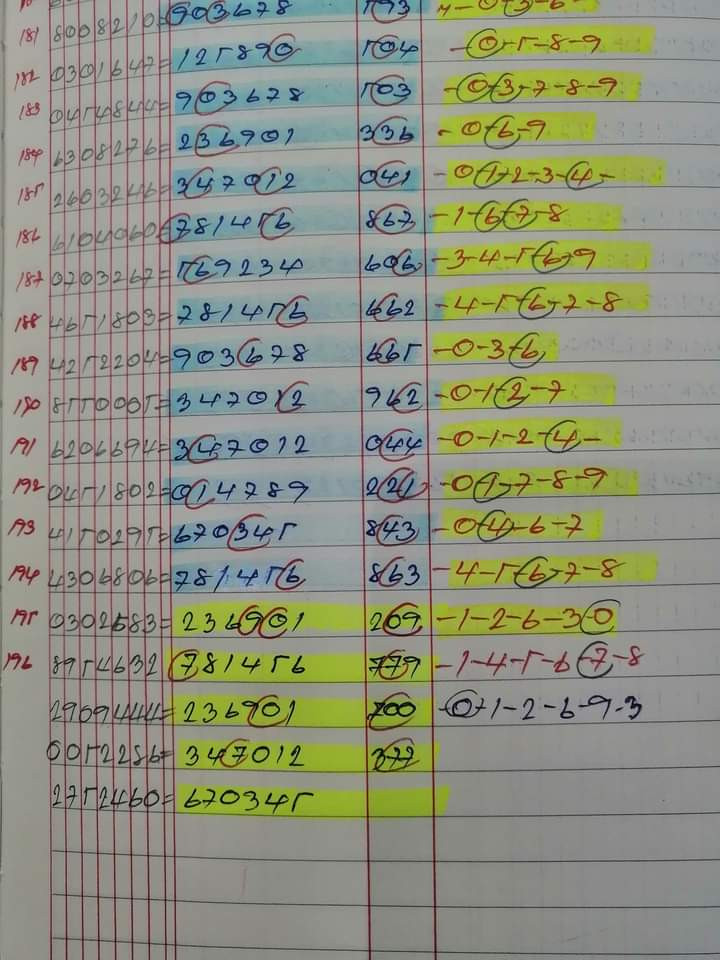 8008210=903678 193 4-0-3-6-
181 0301647=125890 504 -0-5-8-9
182 0454844=903678 503 -0-3-7-8-9
183 6308276=236901 336 -0-6-9
184 2603246=347012 041 -0-1-2-3-4-
185 6104060=781456 867 -1-6-7-8
186 0703267=569234 606 -3-4-5-6-9
187 4651803=781456 662 -4-5-6-7-8
188 4252204=903678 665 -0-3-6
189 8550005=347012 962 -0-1-2-7
190 6206694=347012 044 -0-1-2-4-
191 0451802=014789 221 -0-1-7-8-9
192 4150295=670345 843 -0-4-6-7
193 4306806=781456 863 -4-5-6-7-8
194 0302683=236901 209 -1-2-6-3-0
195 8954632 781456 779 -1-4-5-6-7-8
196 2909444=236901 700 -0-1-2-6-9-3
0052286=347012 377
2752460=670345